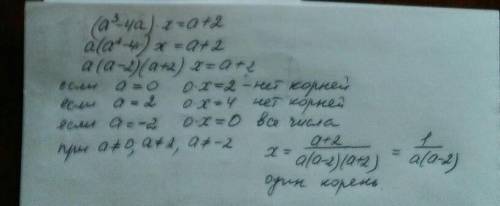 (a³-4a) x = a+2
a(a²-4) x = a+2
a(a-2)(a+2) x = a+2
если a = 0 0·x=2 - нет корней
если a = 2 0·x=4 нет корней
если a=-2 0·x=0 все числа
при a≠0, a≠2, a≠-2 x = \frac{a+2}{a(a-2)(a+2)} = \frac{1}{a(a-2)}
один корень